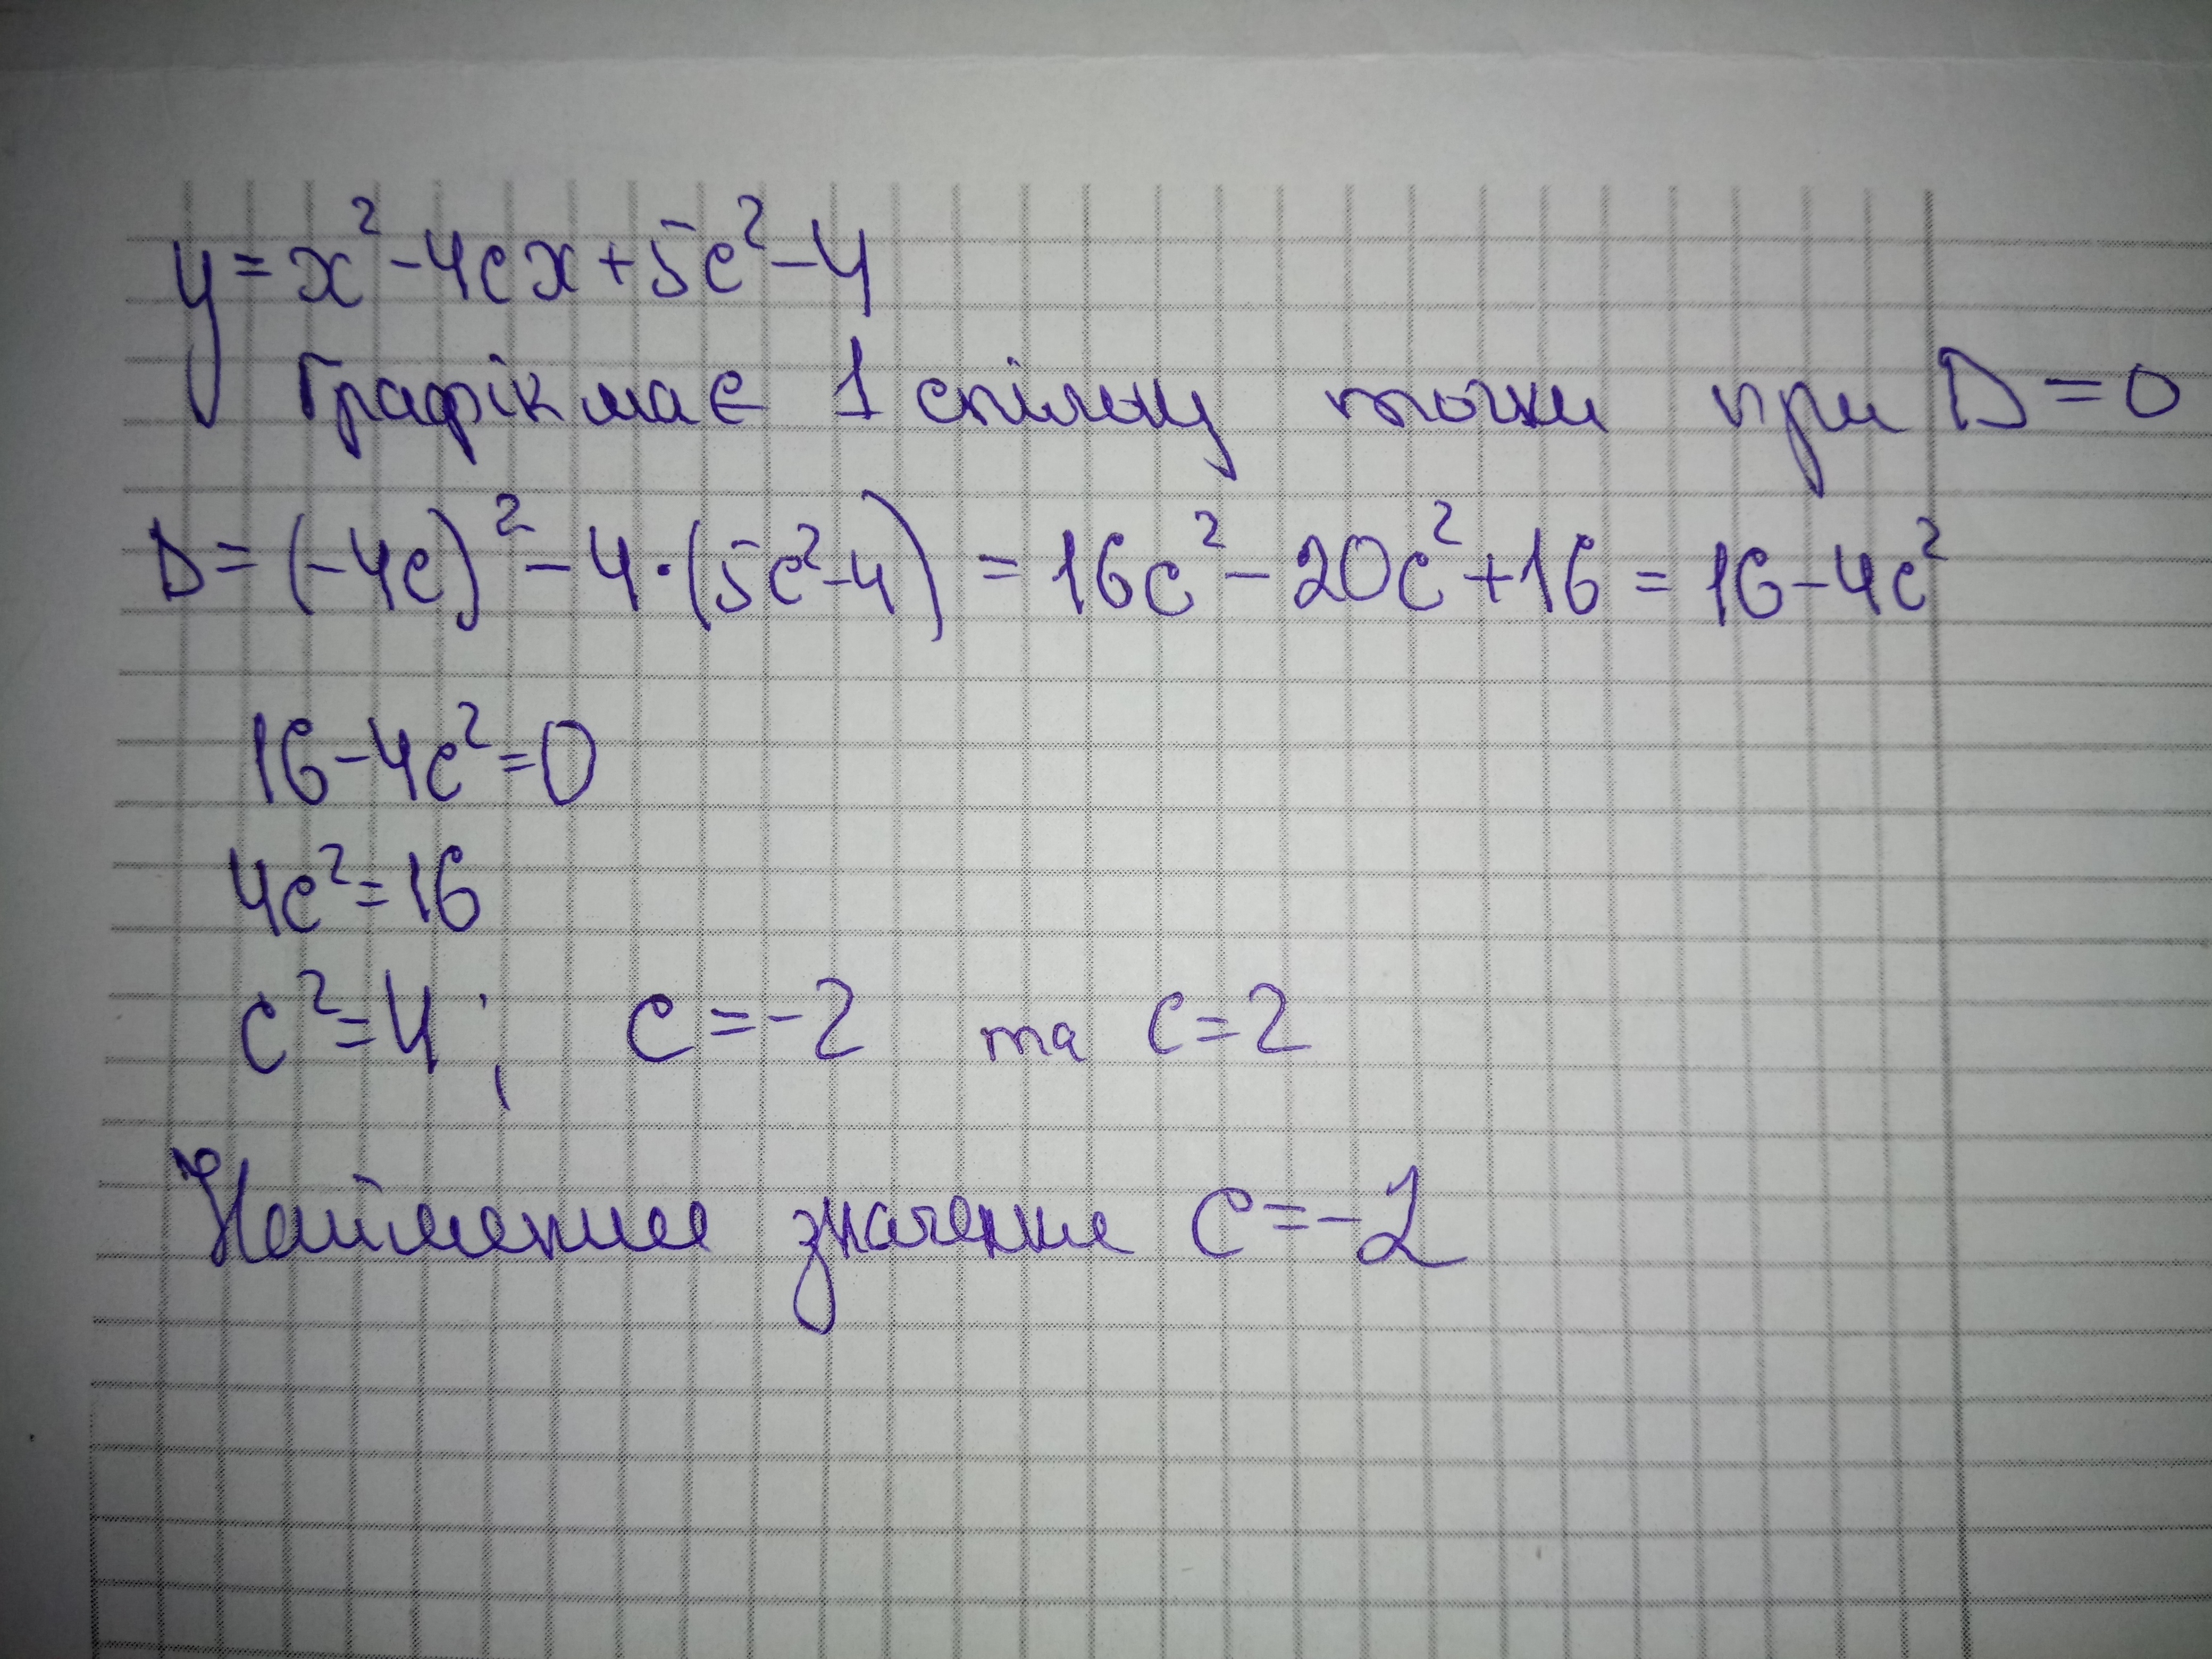 y = x² - 4cx + 5c² - 4
Графік має 1 спільну точки при D = 0
D = (-4c)² - 4·(5c² - 4) = 16c² - 20c² + 16 = 16 - 4c²
16 - 4c² = 0
4c² = 16
c² = 4; c = -2 та c = 2
Найменше значення c = -2